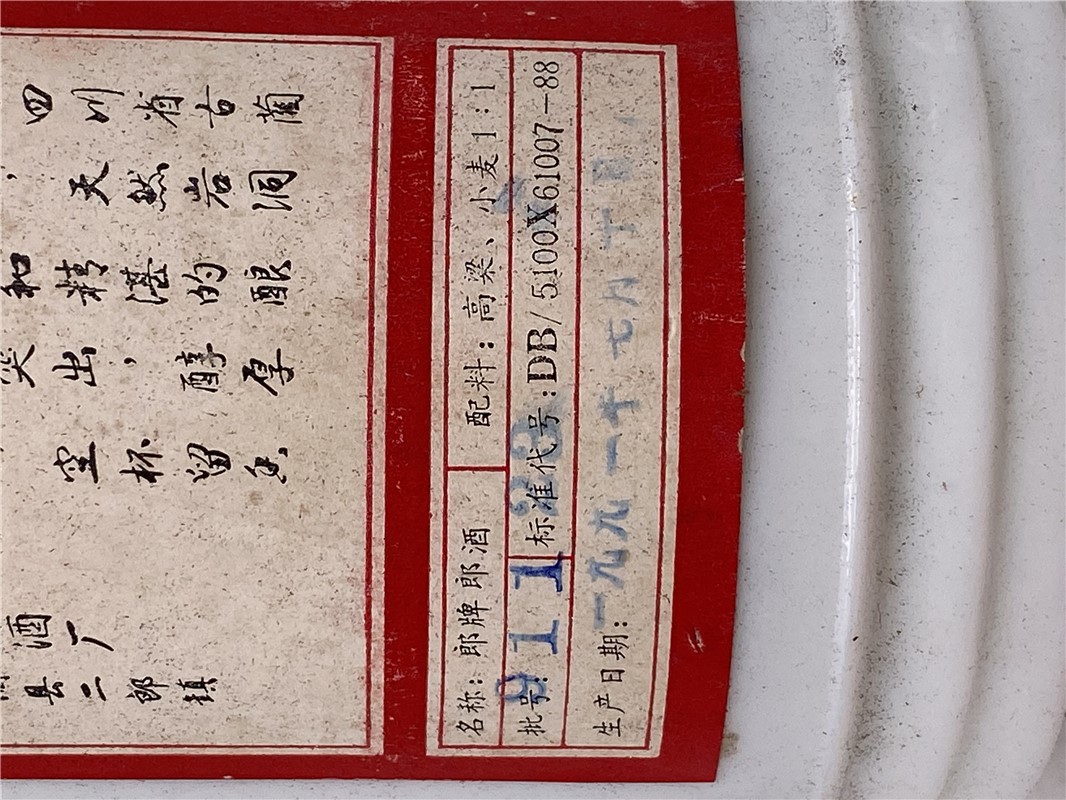 四川省古蔺
，天然岩洞
和精湛的酿
突出，醇厚
空杯留香
酒厂
县二郎镇
名称：郎牌郎酒 配料：高粱、小麦1：1
批号：911 标准代号：DB/5100X61007-88
生产日期：一九九一年七月十日